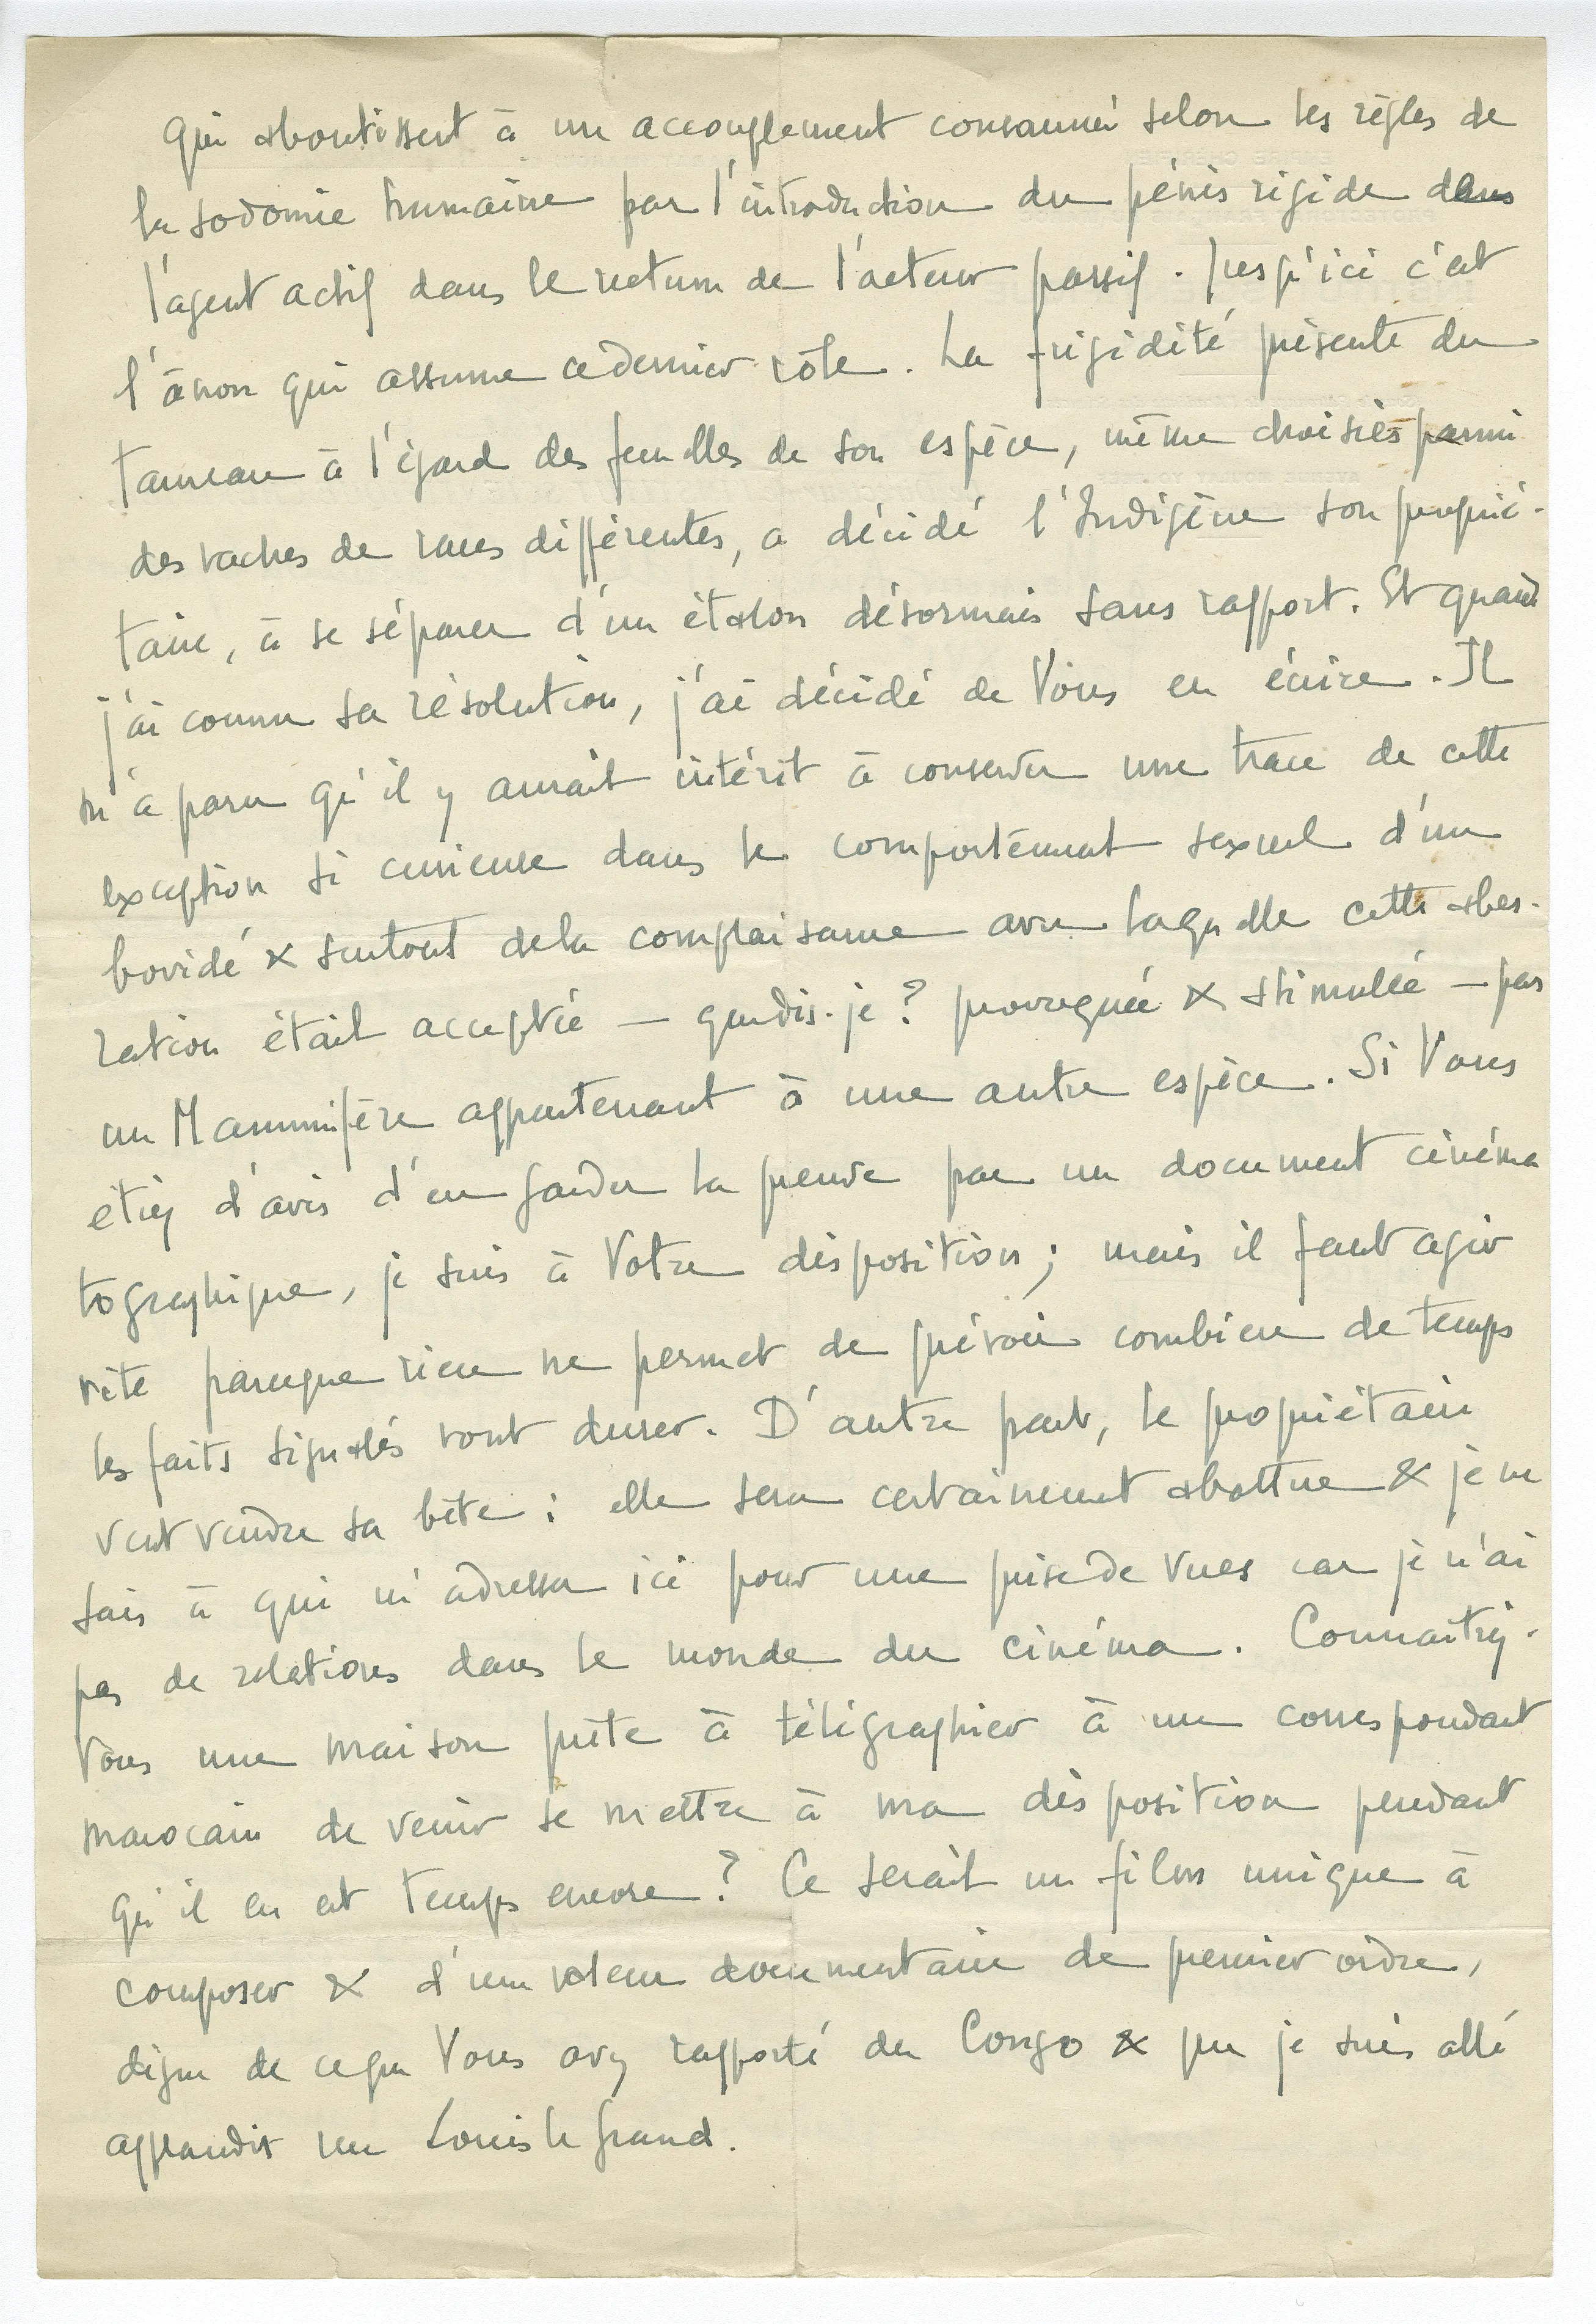 qui aboutissent à un accouplement consommé selon les règles de
la sodomie humaine par l'introduction du pénis rigide dans
l'agent actif dans le rectum de l'acteur passif. Jusqu'ici c'est
l'ânon qui assume ce dernier rôle. La frigidité présente du
taureau à l'égard des femelles de son espèce, même choisies parmi
des vaches de races différentes, a décidé l'Indigène son proprié-
taire, à se séparer d'un étalon désormais sans rapport. Et quand
j'ai connu sa résolution, j'ai décidé de Vous en écrire. Il
m'a paru qu'il y aurait intérêt à conserver une trace de cette
exception si curieuse dans le comportement sexuel d'un
bovidé & surtout de la complaisance avec laquelle cette aber-
ration était acceptée — que dis-je? provoquée & stimulée — par
un Mammifère appartenant à une autre espèce. Si Vous
étiez d'avis d'en garder la preuve par un document cinéma
tographique, je suis à Votre disposition; mais il faut agir
vite parceque rien ne permet de prévoir combien de temps
les faits signalés vont durer. D'autre part, le propriétaire
veut vendre sa bête: elle sera certainement abattue & je ne
sais à qui m'adresser ici pour une prise de vues car je n'ai
pas de relations dans le monde du cinéma. Connaîtriez-
Vous une maison prête à télégraphier à un correspondant
marocain de venir se mettre à ma disposition pendant
qu'il en est temps encore? Ce serait un film unique à
composer & d'une valeur documentaire de premier ordre,
digne de ce que Vous avez rapporté du Congo & que je suis allé
applaudir rue Louis le Grand.